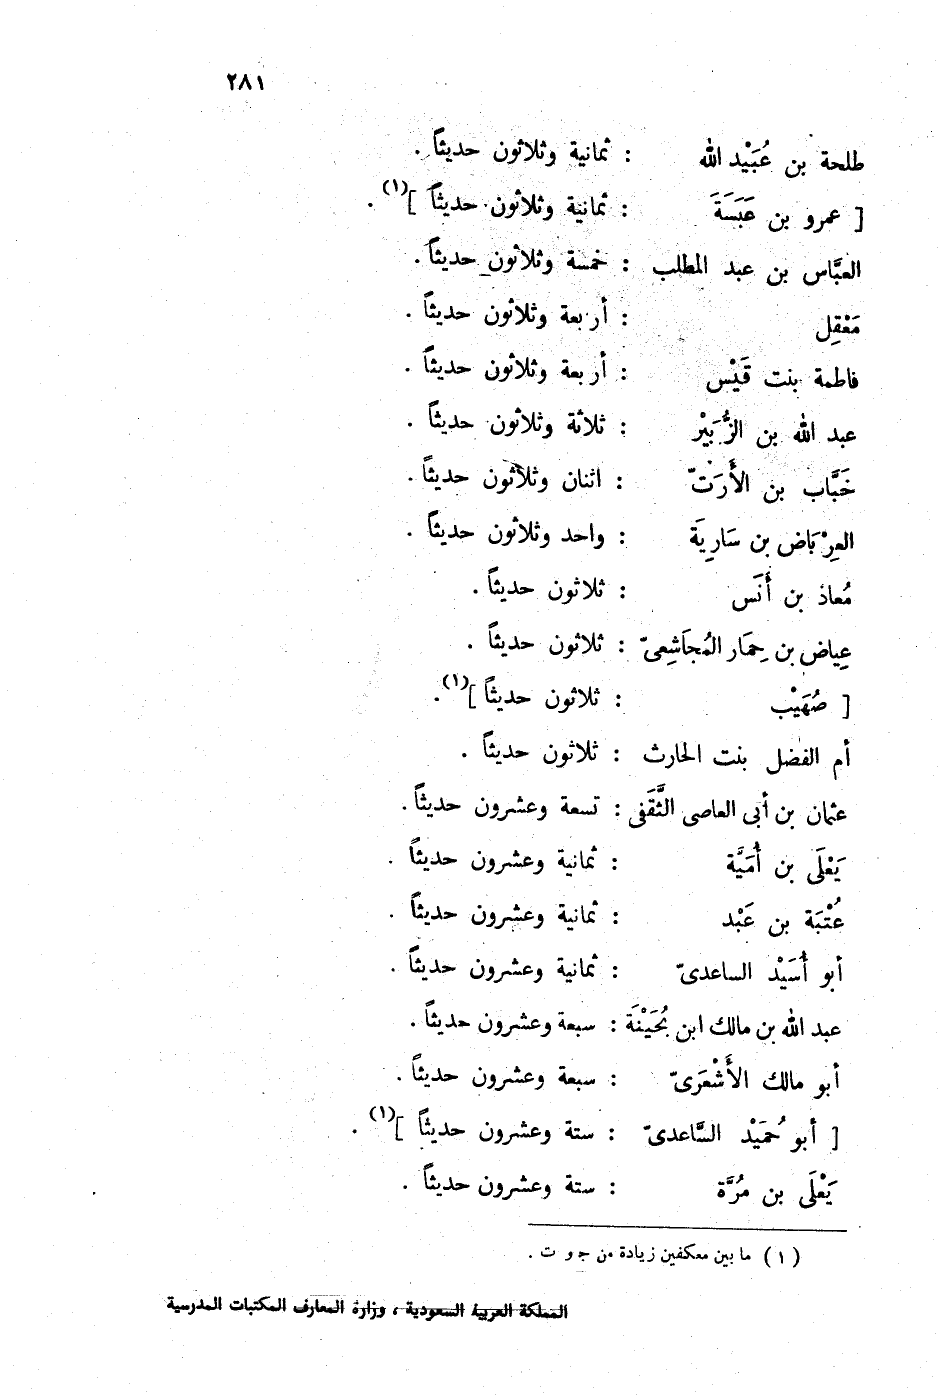 ٢٨١
طلحة بن عُبَيْد الله : ثمانية وثلاثون حديثاً .
[ عمرو بن عَبَسَةَ : ثمانية وثلاثون حديثاً ](١) .
العبَّاس بن عبد المطلب : خمسة وثلاثون حديثاً .
مَعْقِل : أربعة وثلاثون حديثاً .
فاطمة بنت قَيْس : أربعة وثلاثون حديثاً .
عبد الله بن الزُّبَيْر : ثلاثة وثلاثون حديثاً .
خَبَّاب بن الأَرَتّ : اثنان وثلاثون حديثاً .
العِرْبَاض بن سَارِيَة : واحد وثلاثون حديثاً .
مُعاذ بن أَنَس : ثلاثون حديثاً .
عِياض بن حِمَار المُجَاشِعىّ : ثلاثون حديثاً .
[ صُهَيْب : ثلاثون حديثاً ](١).
أم الفضل بنت الحارث : ثلاثون حديثاً .
عثمان بن أبى العاصى الثَّقَفى : تسعة وعشرون حديثاً .
يَعْلَى بن أُمَيَّة : ثمانية وعشرون حديثاً .
عُتْبَة بن عَبْد : ثمانية وعشرون حديثاً .
أبو أُسَيْد الساعدىّ : ثمانية وعشرون حديثاً .
عبد الله بن مالك ابن بُحَيْنَة : سبعة وعشرون حديثاً .
أبو مالك الأَشْعَرىّ : سبعة وعشرون حديثاً .
[ أبو حُمَيْد السَّاعدىّ : ستة وعشرون حديثاً ](١) .
يَعْلَى بن مُرَّة : ستة وعشرون حديثاً .
(١) ما بين معكفين زيادة من ج و ت .
المملكة العربية السعودية ، وزارة المعارف المكتبات المدرسية